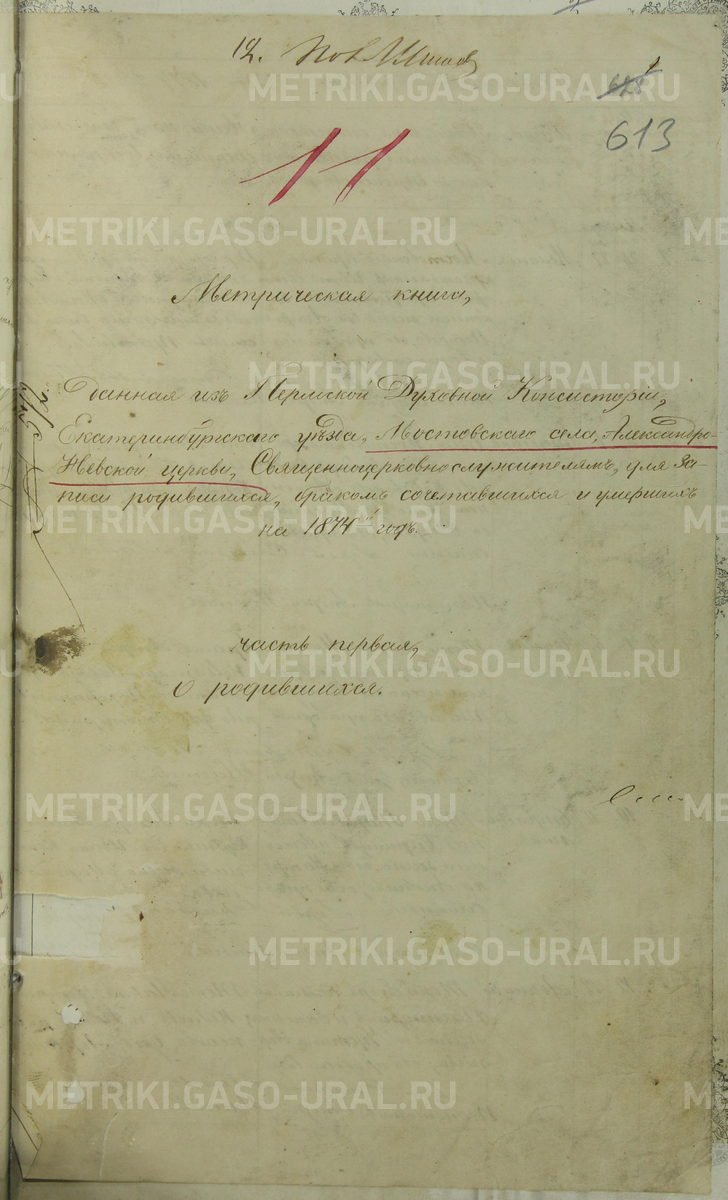 12.
613
11
Метрическая книга,
Данная изъ Пермской Духовной Консисторіи,
Екатеринбургскаго уѣзда, Мостовскаго села, Александро-
Невской церкви, Священноцерковнослужителямъ, для за-
писи родившихся, бракомъ сочетавшихся и умершихъ
на 1874й годъ.
часть первая,
О родившихся.
METRIKI.GASO-URAL.RU
METRIKI.GASO-URAL.RU
METRIKI.GASO-URAL.RU
METRIKI.GASO-URAL.RU
METRIKI.GASO-URAL.RU
METRIKI.GASO-URAL.RU
METRIKI.GASO-URAL.RU
METRIKI.GASO-URAL.RU